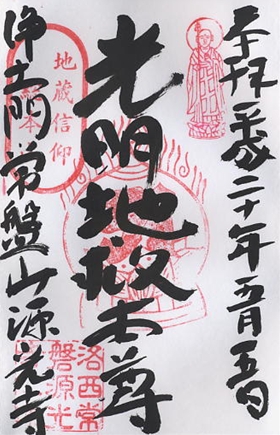 奉拝 平成二十年五月五日
光明地蔵本尊
地蔵信仰
浄土門常盤山源光寺
洛西常
盤源光